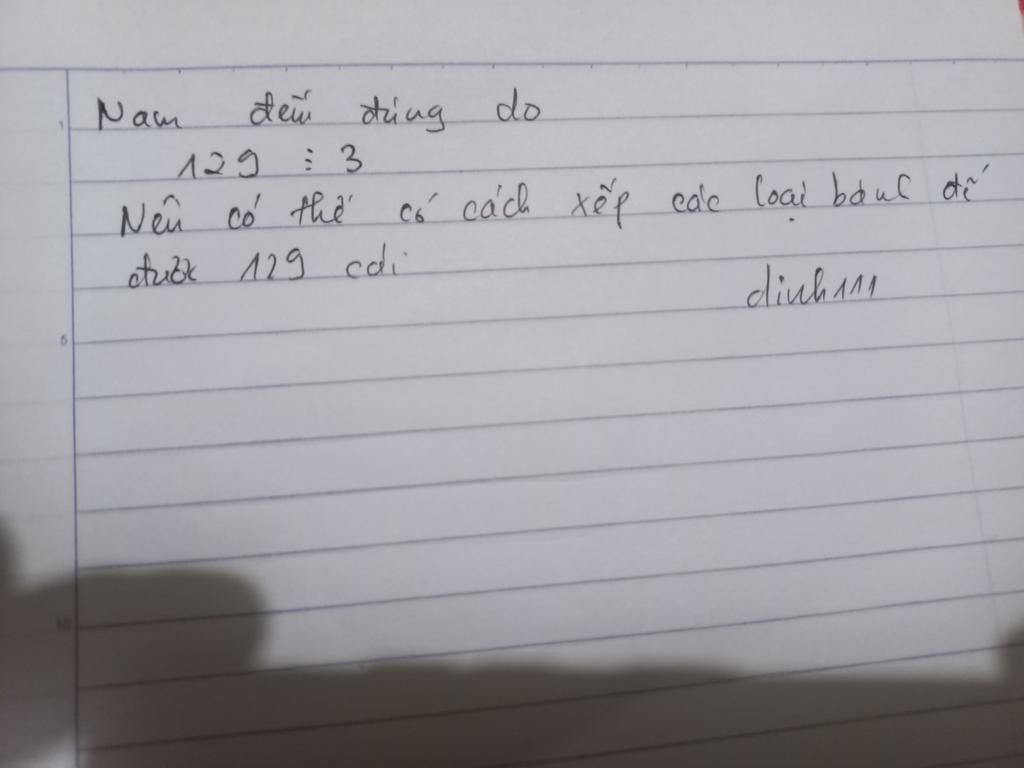 Nam đếm đúng do
129 ⋮ 3
Nên có thể có cách xếp các loại bánh để
được 129 cái
dinh111
1
5
10